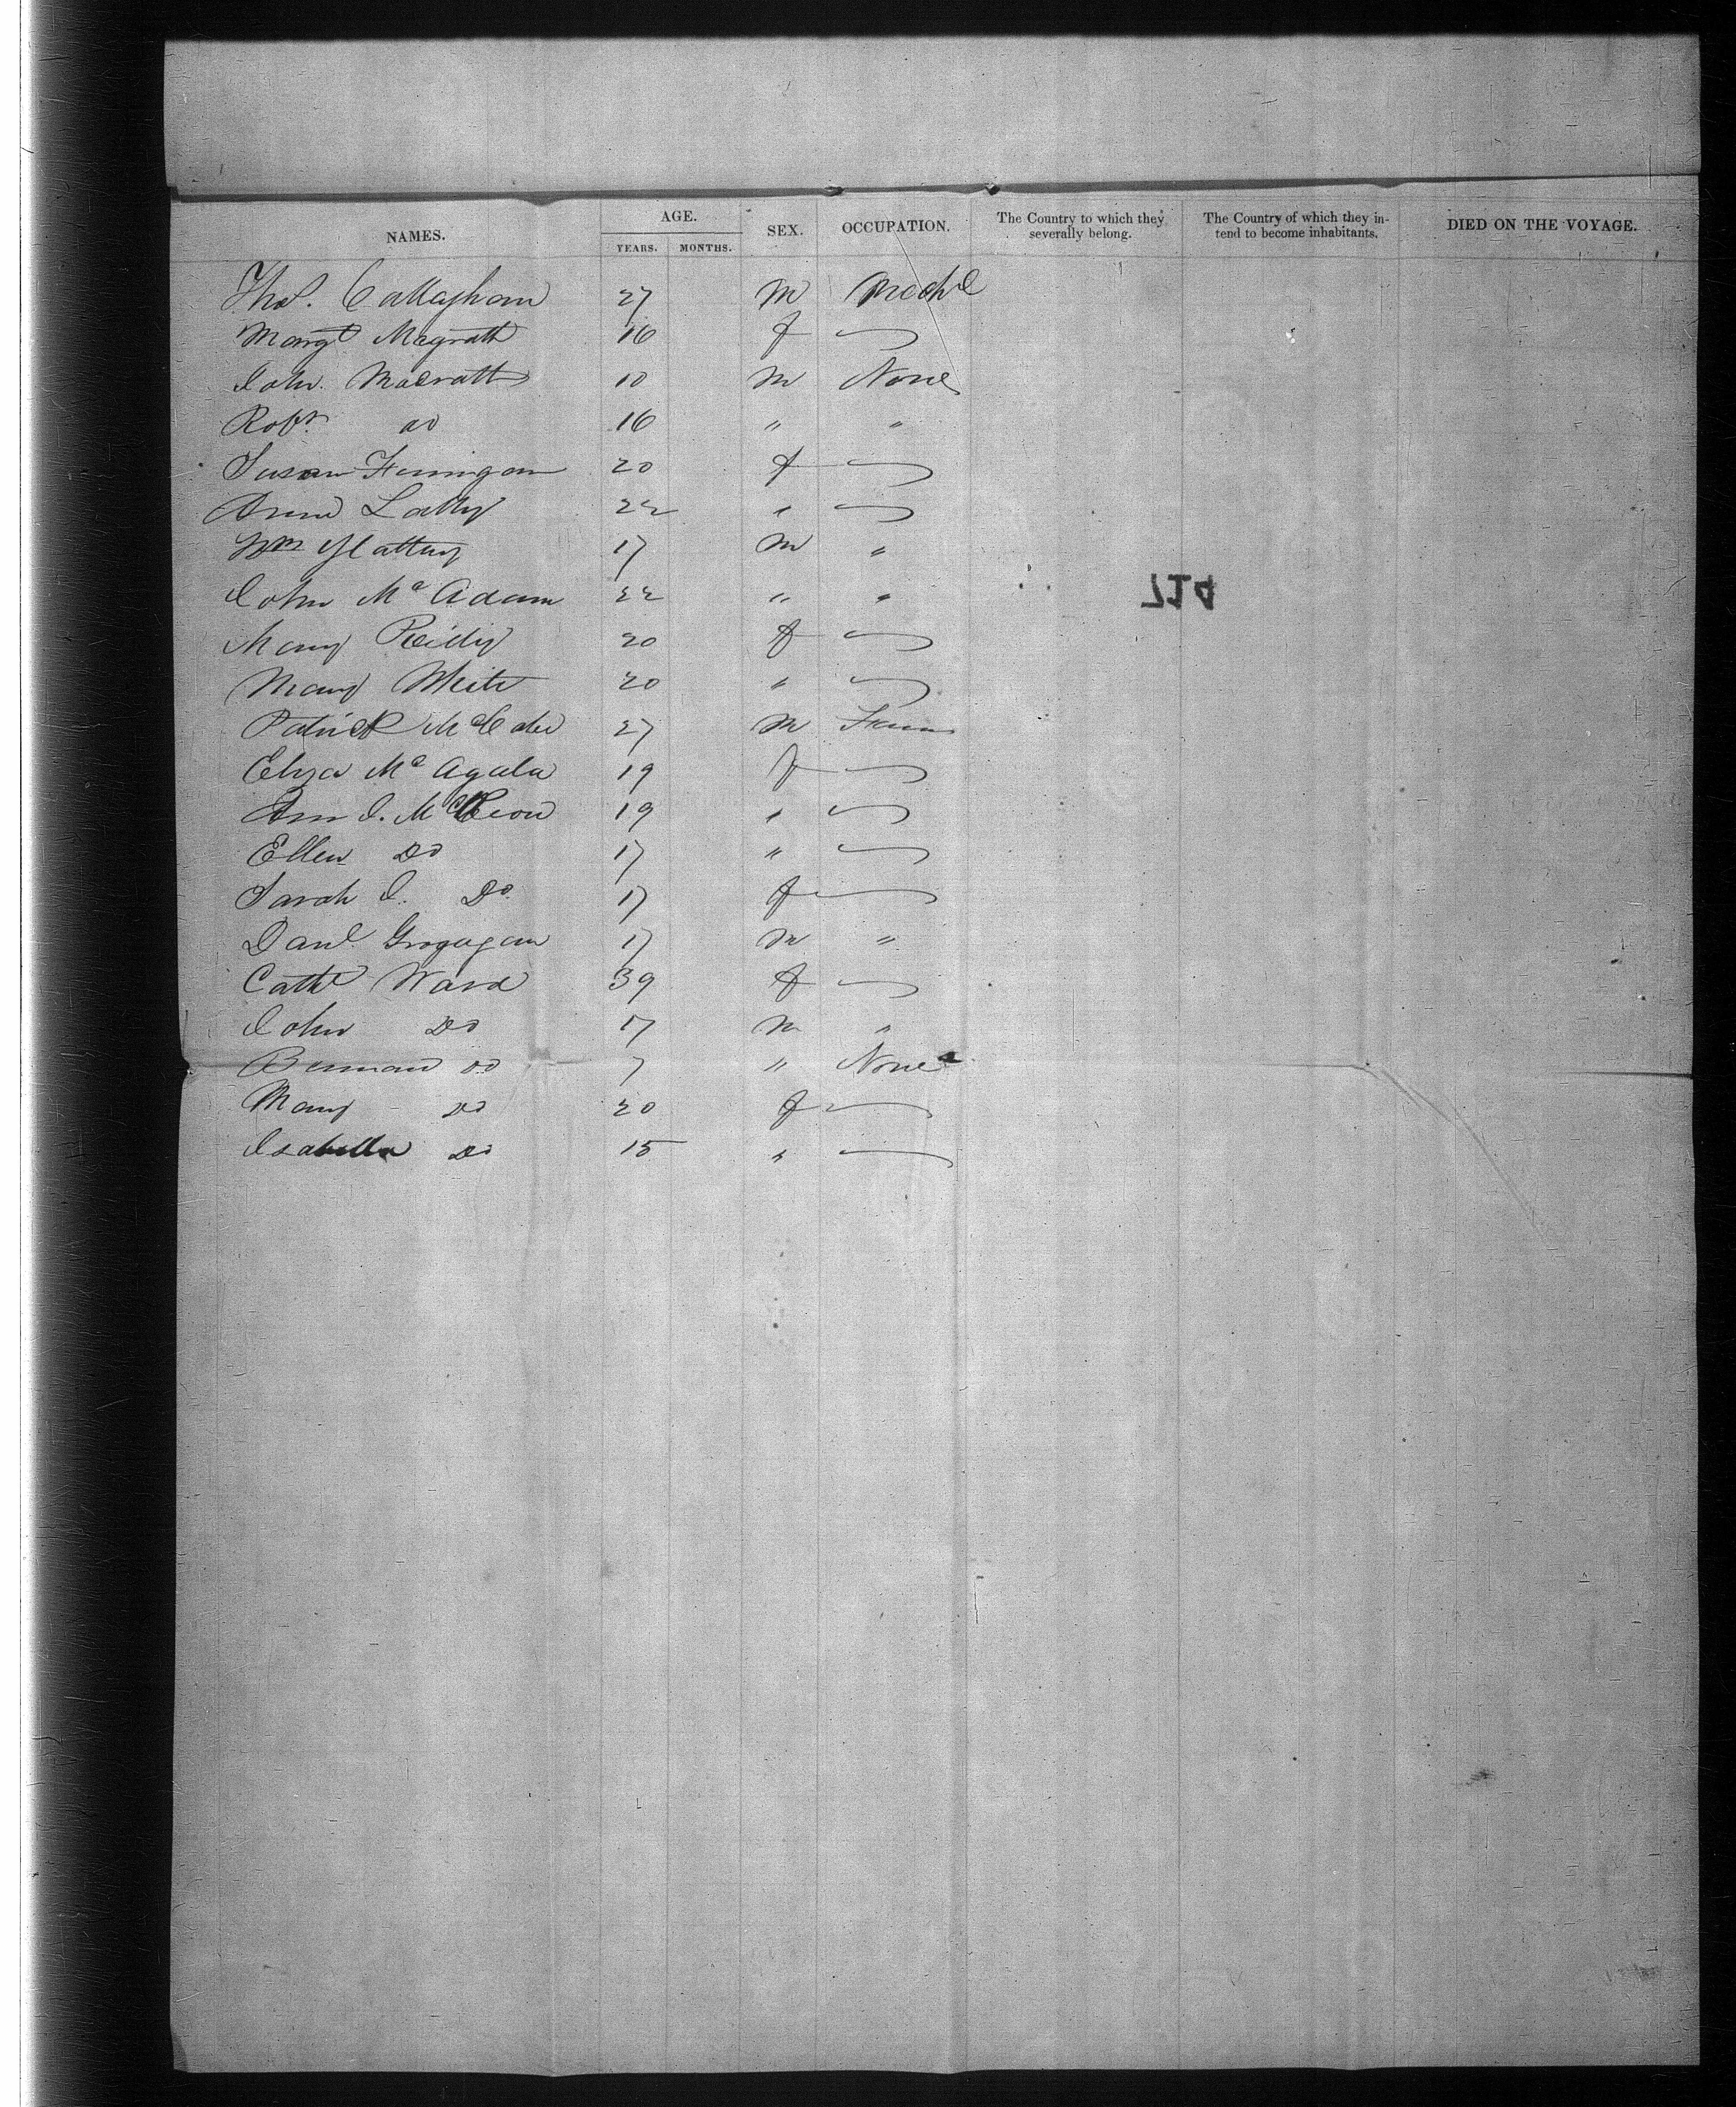 NAMES. AGE. YEARS. MONTHS. SEX. OCCUPATION. The Country to which they severally belong. The Country of which they intend to become inhabitants. DIED ON THE VOYAGE.
Thos. Callaghan 27 M Mech
Margt Magrath 16 f
John Macrath 10 M None
Robt do 16 " "
Susan Finnigan 20 f
Anne Lally 22 "
Wm Slattery 17 M "
John Mc Adam 22 " "
714
Mary Reilly 20 f
Mary White 20 "
Patrick McCabe 27 M Farm
Eliza Mc 19 f
Ann J. McKeon 19 "
Ellen Do 17 "
Sarah J. Do 17 f
Danl Grogagan 17 M "
Cathe Ward 39 f
John Do 17 M "
Bernard Do 7 " None
Mary Do 20 f
Isabella Do 15 "